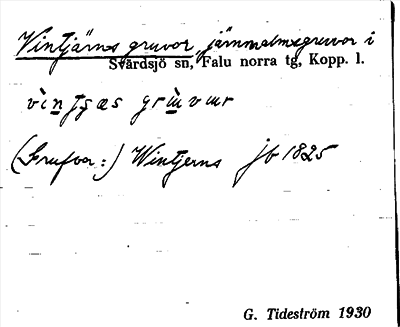 Vintjärns gruvor, järnmalmsgruvor i
Svärdsjö sn, Falu norra tg, Kopp. l.
(Grufvor:) Wintjerns jb 1825
G. Tideström 1930